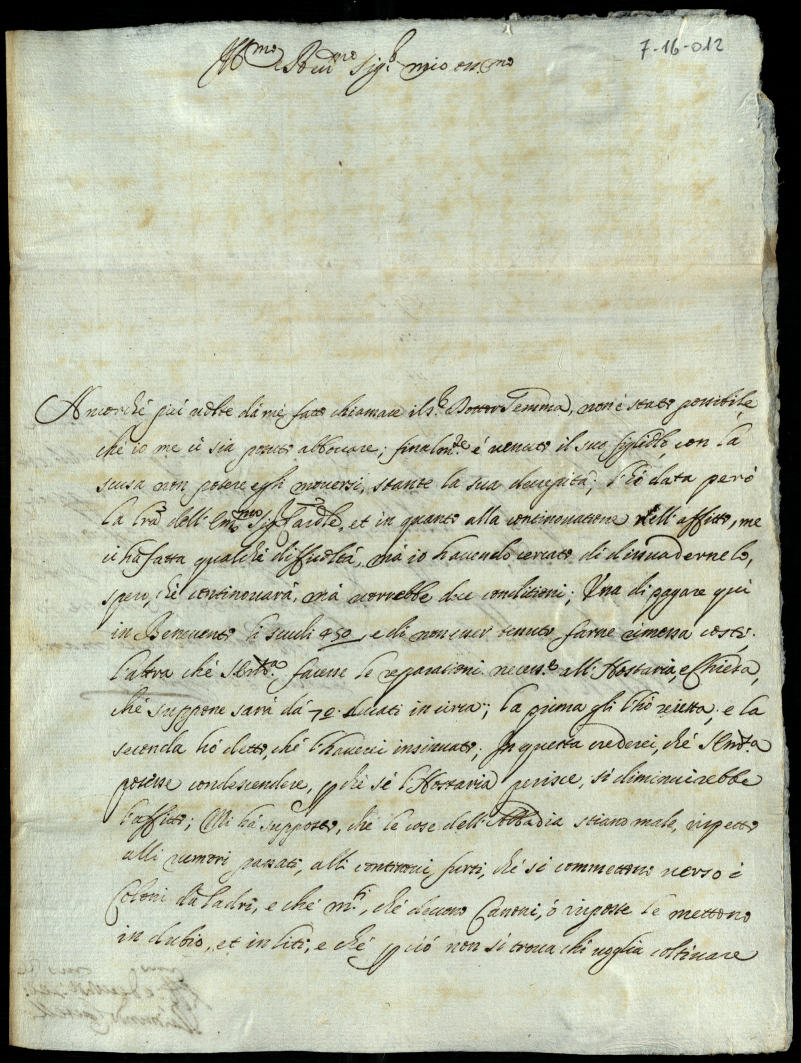 7-16-012
Ill.mo e Reu.mo Sig.r mio oss.mo
Ancorche più uolte da me fatto chiamare il s.r Dottor Temma, non è stato possibile,
che io me ci sia potuto abboccare; finalm.te è uenuto il suo figliolo, con la
scusa non potere egli mouersi, stante la sua decrepità; l'hò data però
la lra dell'Em.mo Sig.r Cardle, et in quanto alla continouatione dell'affitto, me
ci hà fatta qualche difficoltà, mà io hauendo cercato di disuadernelo,
spero, che continouarà, mà uorrebbe due conditioni; Una di pagare qui
in Beneuento li scudi 450, e di non esser tenuto farne rimessa costì.
l'altra che S. Em.za facesse le reparationi necess.e all'Hostaria, e Chiesa,
che suppone sarà da 70 ducati in circa; la prima gli l'hò reietta, e la
seconda hò detto, che l'hauerei insinuato; In questa crederei, che S. Em.za
potesse condescendere, perche se l'Hostaria perisce, si diminuirebbe
l'affitto; Mi hà supposto, che le cose dell'Abbadia stiano male, rispetto
alli rumori passati, alli continoui furti, che si commettono uerso i
Coloni da ladri, e che m.ti, che deuono Canoni, ò risposte le mettono
in dubio, et in liti, e che perciò non si troua chi uoglia coltiuare